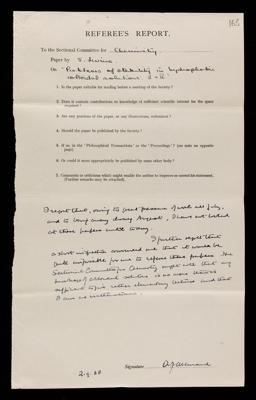 165
REFEREE'S REPORT.
To the Sectional Committee for Chemistry
Paper by S. Levine
on "Problems of stability in hydrophobic
colloidal solutions I - II"
1. Is the paper suitable for reading before a meeting of the Society?
2. Does it contain contributions to knowledge of sufficient scientific interest for the space
required?
3. Are any portions of the paper, or any illustrations, redundant?
4. Should the paper be published by the Society?
5. If so, in the "Philosophical Transactions" or the "Proceedings"? (see note on opposite
page).
6. Or could it more appropriately be published by some other body?
7. Comments or criticisms which might enable the author to improve or correct his statement.
(Further remarks may be attached).
I regret that, owing to great pressure of work all July,
and to being away during August, I have not looked
at these papers until to-day.
I further regret that
a short inspection convinced me that it would be
quite impossible for me to referee these papers. The
Sectional Committee for Chemistry might note that my
knowledge of colloidal solutions is no more than is
sufficient to give rather elementary lectures and that
I am no mathematician.
Signature A. J. Allmand
2.9.38